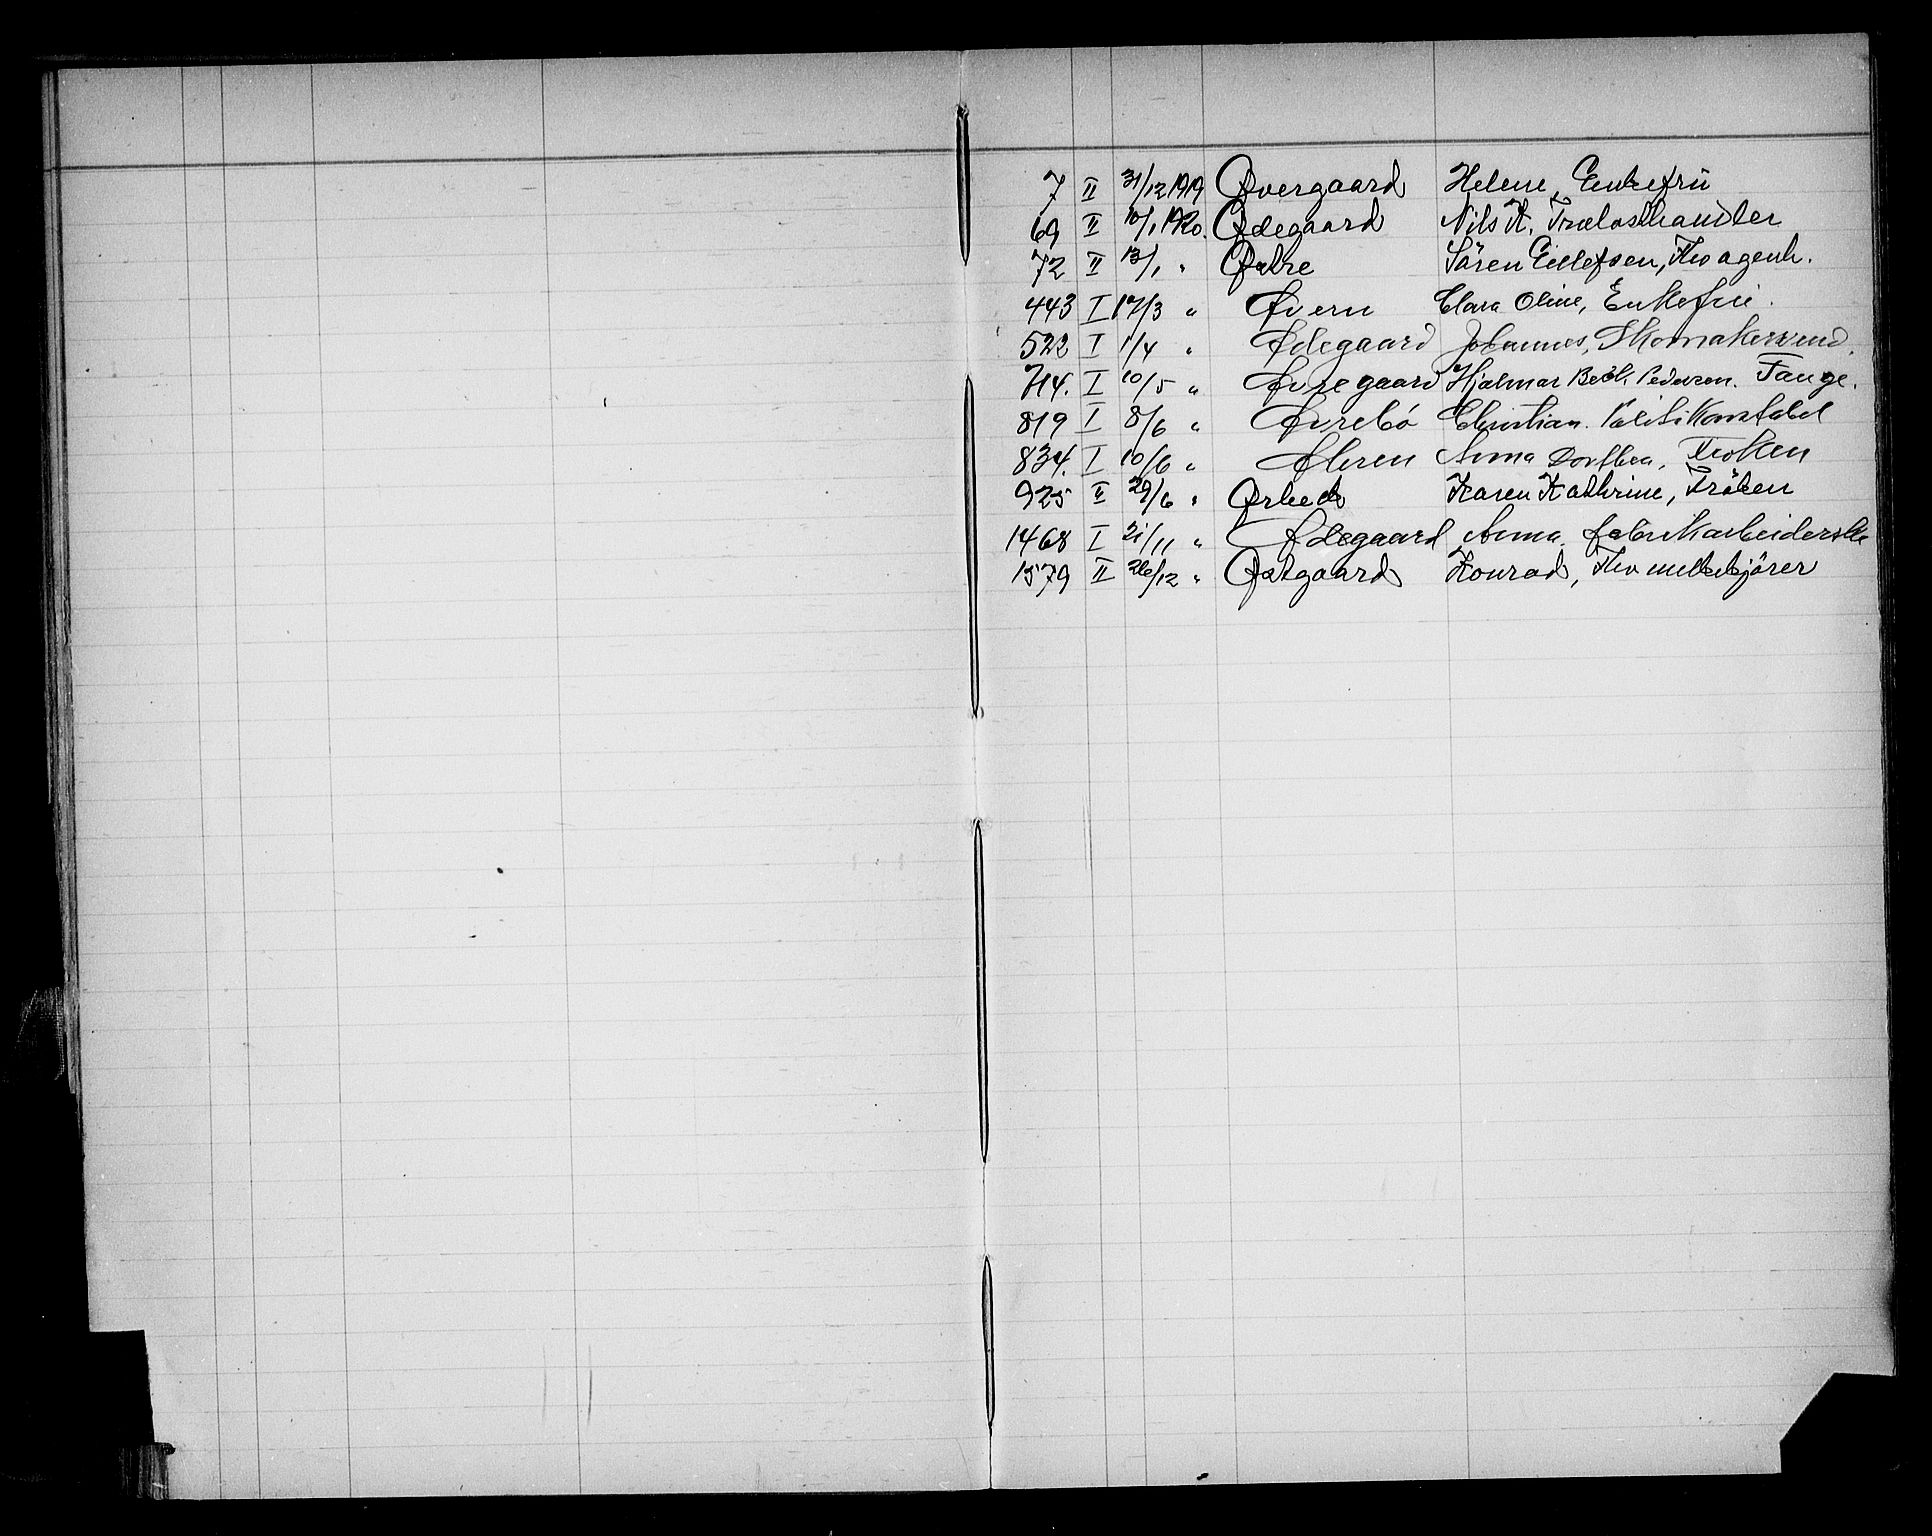 7 II 31/12 1919 Øvergaard Helene, Enkefrü
69 II 10/1 1920. Ødegaard Nils K. Trælasthandler
72 II 13/1 " Sören Eilefsen, Fhv agent.
443 I 17/3 " Øvern Clara Oline, Enkefrue.
522 I 1/4 " Ødegaard Johannes, Skomakersvend.
714. I 10/5 " Øvregaard Hjalmar Bech Pedersen. Fange.
819 I 8/6 " Øvrebó Christian. Politikonstabel
834. I 10/6 " Øhren Anna Dorthea, Frøken
925 II 29/6 " Ørbeck Karen Kathrine, Fröken
1468 I 21/11 " Ødegaard Anna. fabrikarbeiderske
1579 II 26/12 " Østgaard Konrad, Fhv melkekjörer